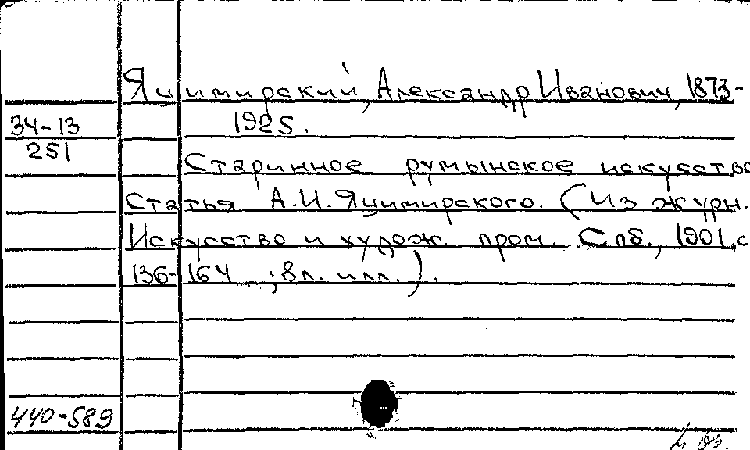 Яцимирский, Александр Иванович, 1873-
34-13
1925.
251
Старинное румынское искусство
Статья А.И. Яцимирского. (Из журн.
Искусство и худож. пром. Спб., 1901, с
136-164 ; 8 л. илл.).
440-589